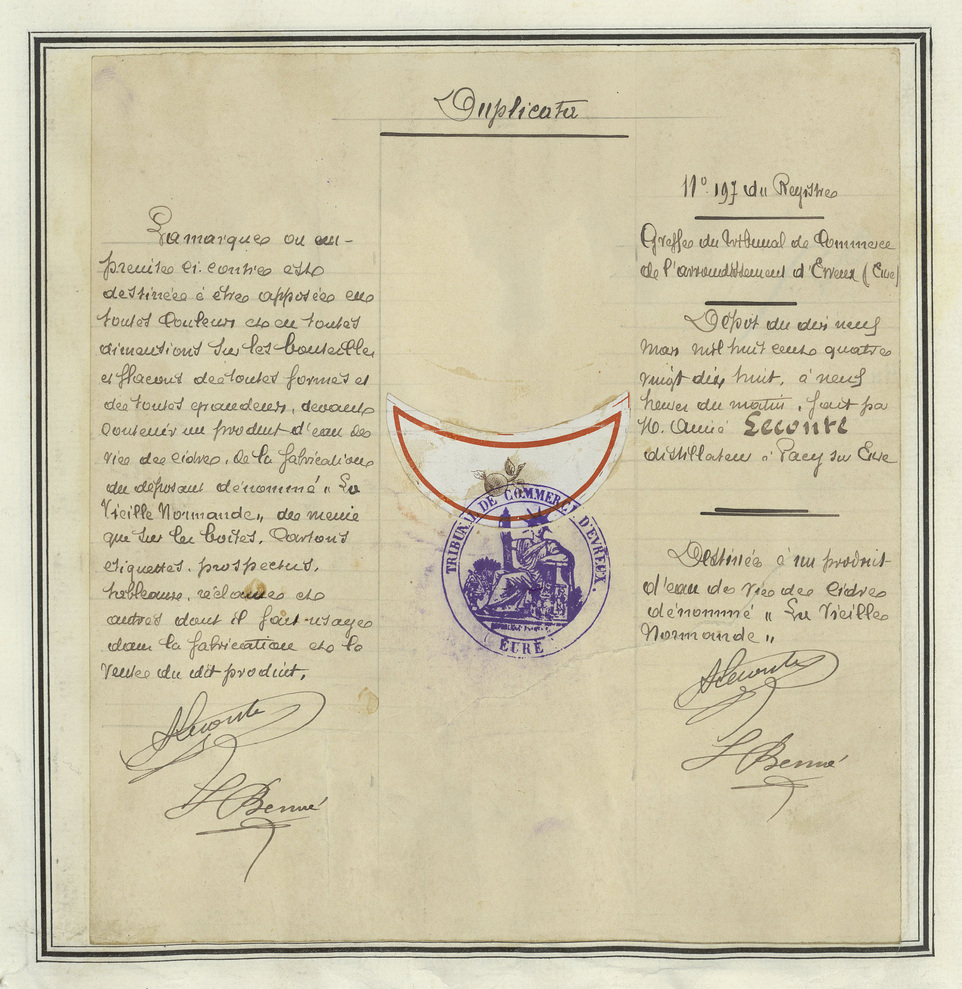 Duplicata
La marque ou em-
preinte ci-contre est
destinée à être apposée en
toutes Couleurs et en toutes
dimentions sur les bouteilles
et flacons de toutes formes et
de toutes grandeurs, devant
Contenir un produit d'eau de
vie de cidre, de la fabrication
du déposant dénommé " La
Vieille Normande " de même
que sur les boîtes, Cartons
étiquettes, prospectus,
tableaux, réclames et
autres dont il fait usage
dans la fabrication et la
vente du dit produit.
ALeconte
Benné
TRIBUNAL DE COMMERCE D'EVREUX.
( EURE )
N° 197 du Registre
Greffe du Tribunal de Commerce
de l'arrondissement d'Evreux ( Eure )
Dépôt du dix neuf
mars mil huit cent quatre
vingt dix huit, à neuf
heures du matin, fait par
M. Aimé Leconte
distillateur à Pacy sur Eure
Destinée à un produit
d'eau de vie de cidre
dénommé " La Vieille
Normande "
ALeconte
Benné